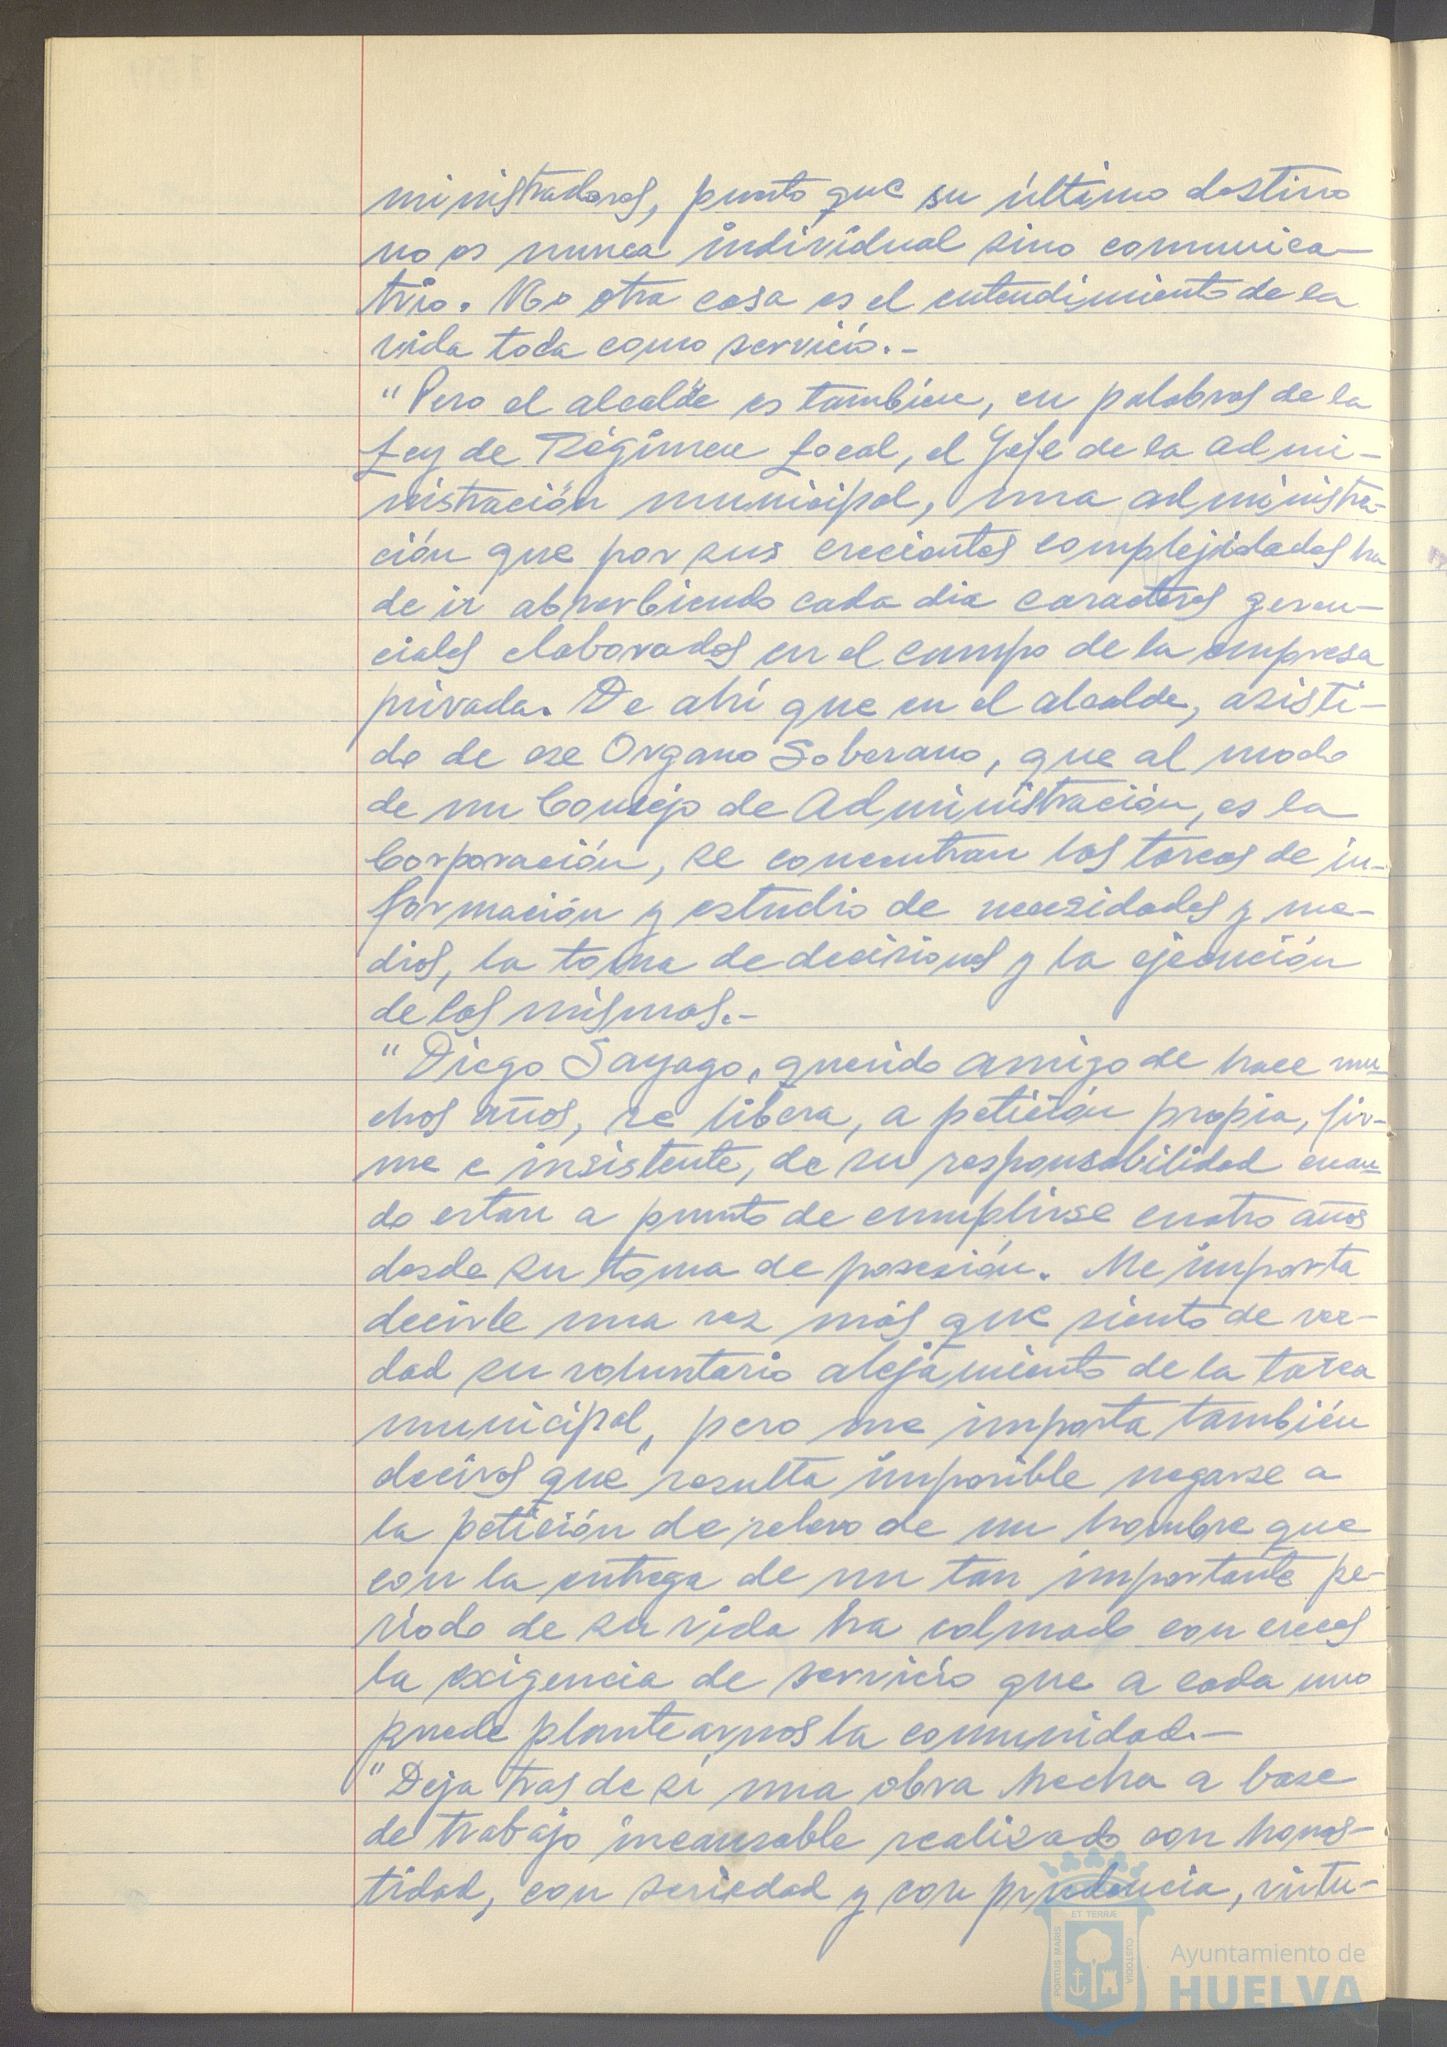 ministradores, puesto que su último destino
no es nunca individual sino comunica-
trio. No otra cosa es el entendimiento de la
vida toda como servicio.-
"Pero el alcalde es tambien, en palabras de la
Ley de Régimen Local, el Jefe de la admi-
nistración municipal, una administra-
ción que por sus crecientes complejidades ha
de ir absorbiendo cada dia caracteres geren-
ciales elaborados en el campo de la empresa
privada. De ahí que en el alcalde, asisti-
do de ese Organo Soberano, que al modo
de un Consejo de Administración, es la
Corporación, se concentran las tareas de in-
formación y estudio de necesidades y me-
dios, la toma de decisiones y la ejecución
de las mismas.-
"Diego Sayago, querido amigo de hace mu-
chos años, se libera, a petición propia, fir-
me e insistente, de su responsabilidad cuan-
do estan a punto de cumplirse cuatro años
desde su toma de posesión. Me importa
decirle una vez más que siento de ver-
dad su voluntario alejamiento de la tarea
municipal, pero me importa también
deciros que resulta imposible negarse a
la petición de relevo de un hombre que
con la entrega de un tan importante pe-
riodo de su vida ha colmado con creces
la exigencia de servicio que a cada uno
puede plantearnos la comunidad.-
"Deja tras de si una obra hecha a base
de trabajo incansable realizado con hones-
tidad, con seriedad y con prudencia, virtu-
PORTUS MARIS ET TERRÆ CUSTODIA
Ayuntamiento de
HUELVA